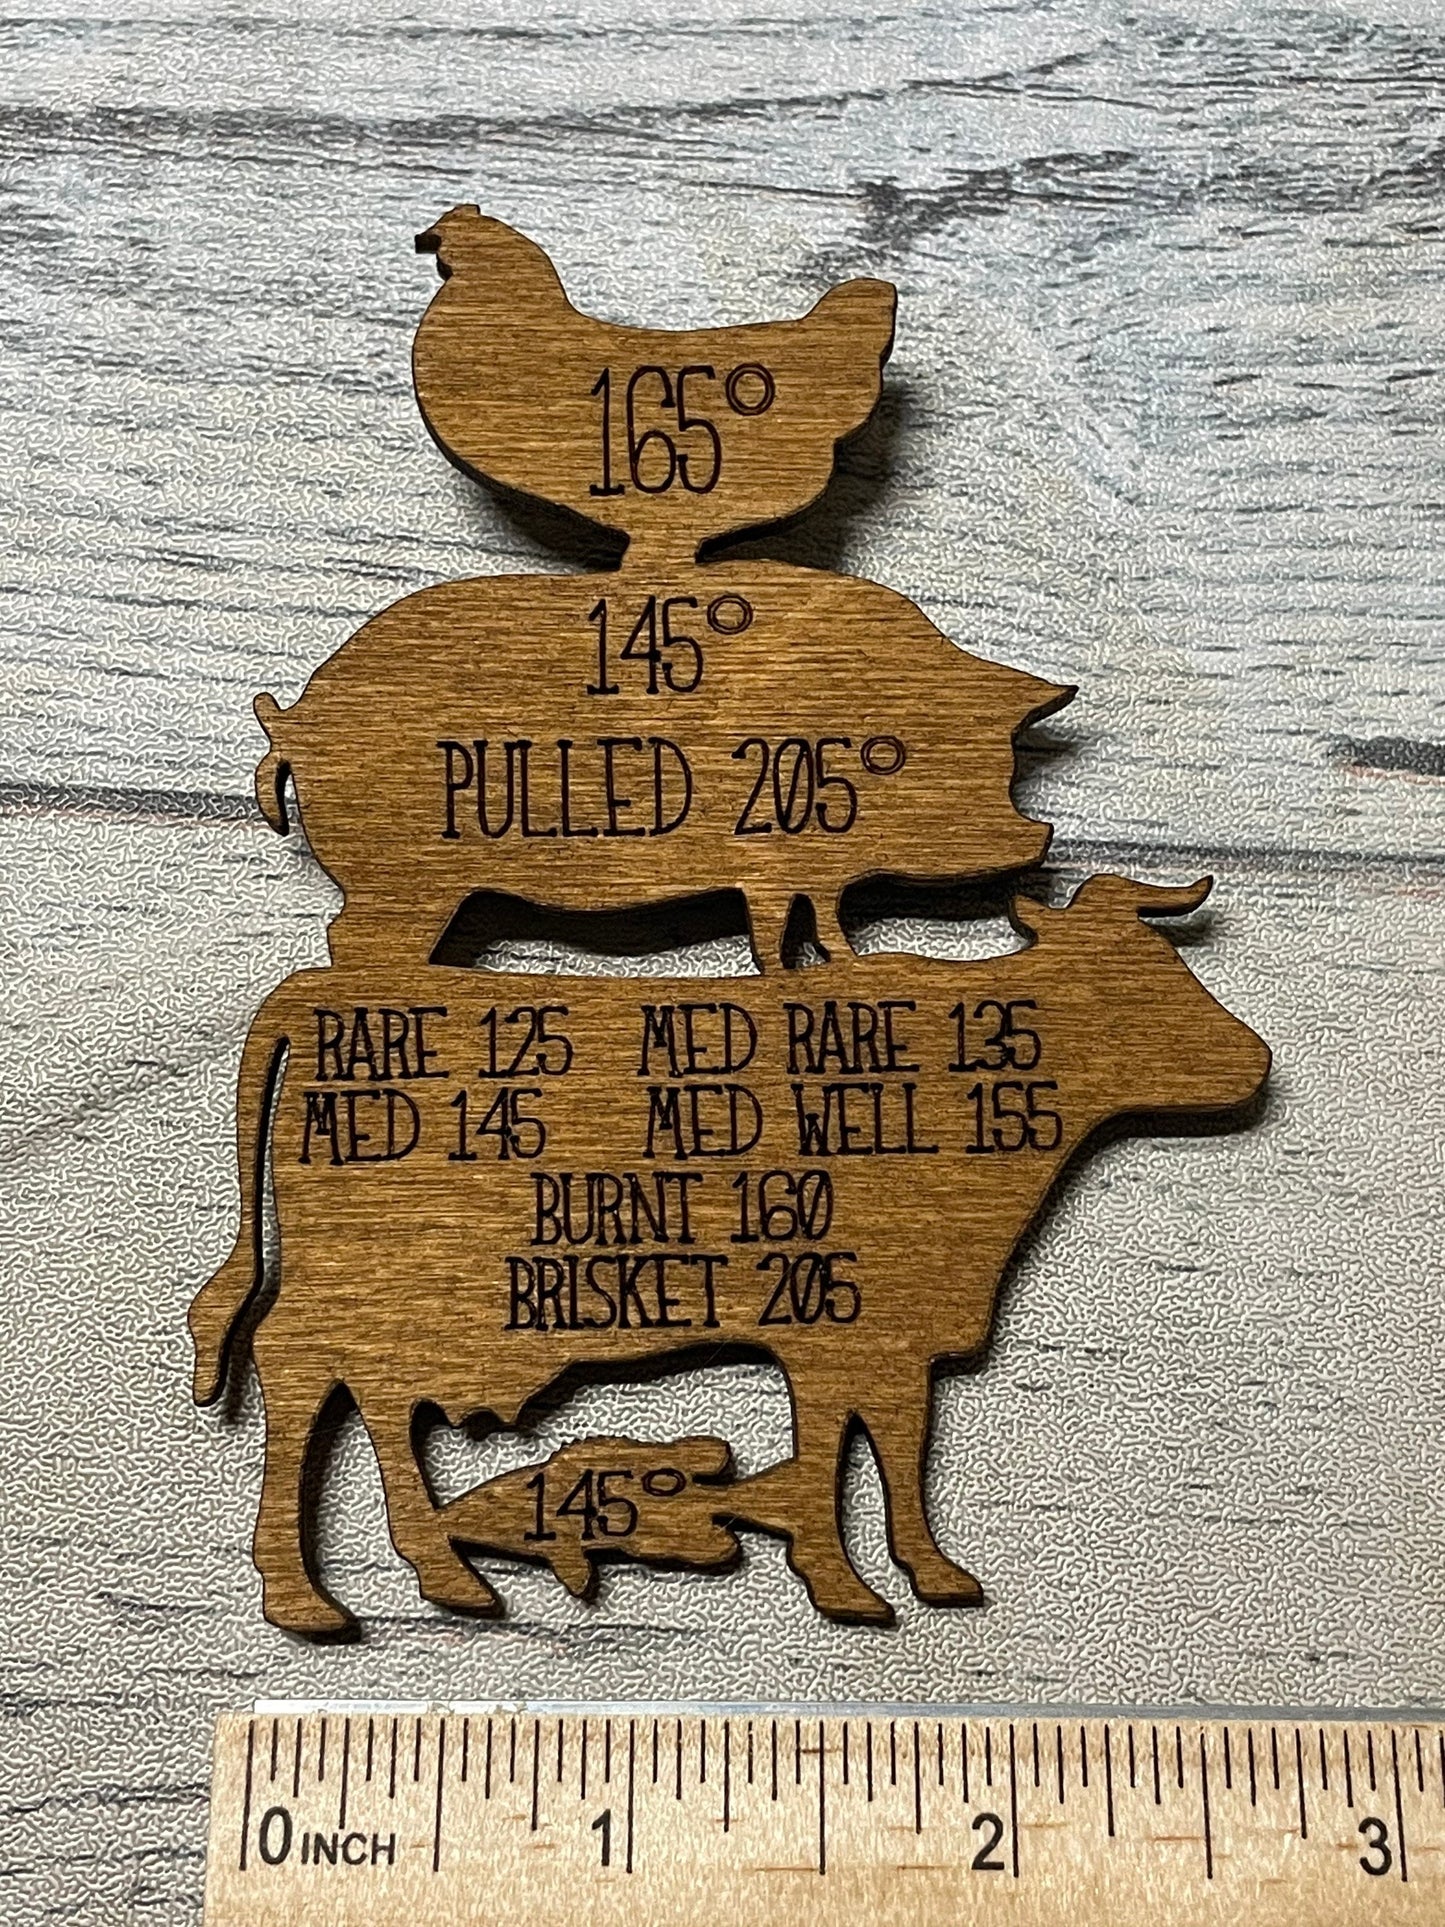 165°
145°
PULLED 205°
RARE 125 MED RARE 135
MED 145 MED WELL 155
BURNT 160
BRISKET 205
145°
0 INCH 1 2 3